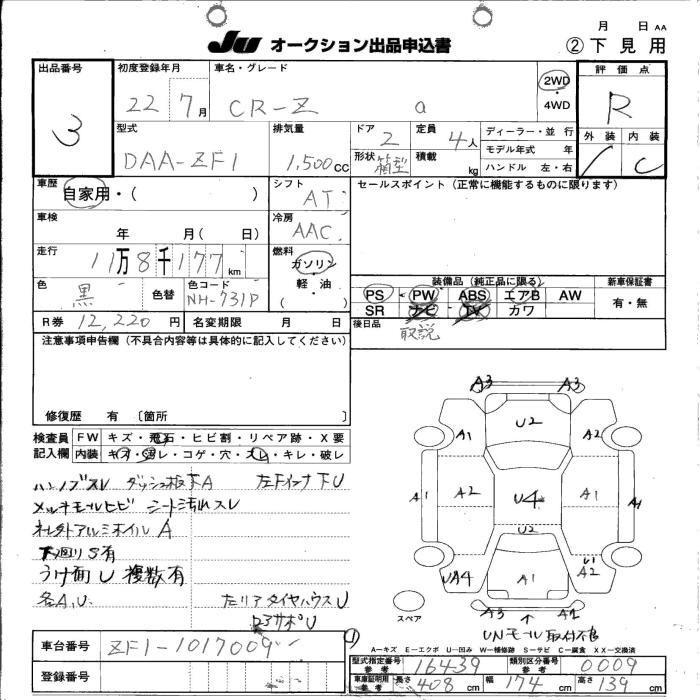 月 日 AA
JU オークション出品申込書 ②下見用
出品番号 初度登録年月 車名・グレード 評価点
3 22 7月 CR-Z α 2WD・4WD R
型式 排気量 ドア 定員 ディーラー・並行 外装 内装
DAA-ZF1 1,500CC 2 4人 モデル年式 年 / C
形状 箱型 積載 kg ハンドル 左・右
車歴 シフト セールスポイント(正常に機能するものに限ります)
自家用・( ) AT
車検 冷房
年 月( 日) AAC
走行 燃料
11万8千177km ガソリン・軽油・( )
色 黒 色替 色コード NH-731P
装備品(純正品に限る) 新車保証書
PS・PW・ABS・エアB AW 有・無
SR ナビ・TV・カワ
R券 12,220円 名変期限 月 日 後日品 取説
注意事項申告欄(不具合内容等は具体的に記入してください)
修復歴 有 〔箇所 〕
検査員記入欄 FW キズ・飛石・ヒビ割・リペア跡・X要
内装 キズ・汚レ・コゲ・穴・スレ・キレ・破レ
ハンドブスレ ダッシュ板下A 左Fインナ下U
メッキモールヒビ シート汚れスレ
社外アルミホイルA
下廻りS有
うけ面U 複数有
各A,U 左リアタイヤハウスU
A3 A3
U2
A1 A2
A1 A2 U4 A1 A1
U2
UA4 A1 U1 A2
A3 A2
スペア
UNモール取付不良
A−キズ E−エクボ U−凹み W−補修跡 S−サビ C−腐食 XX−交換済
車台番号 ZF1-1017009
登録番号
型式指定番号参考 16439 類別区分番号参考 0009
車庫証明用参考 長さ 408cm 幅 174cm 高さ 139cm